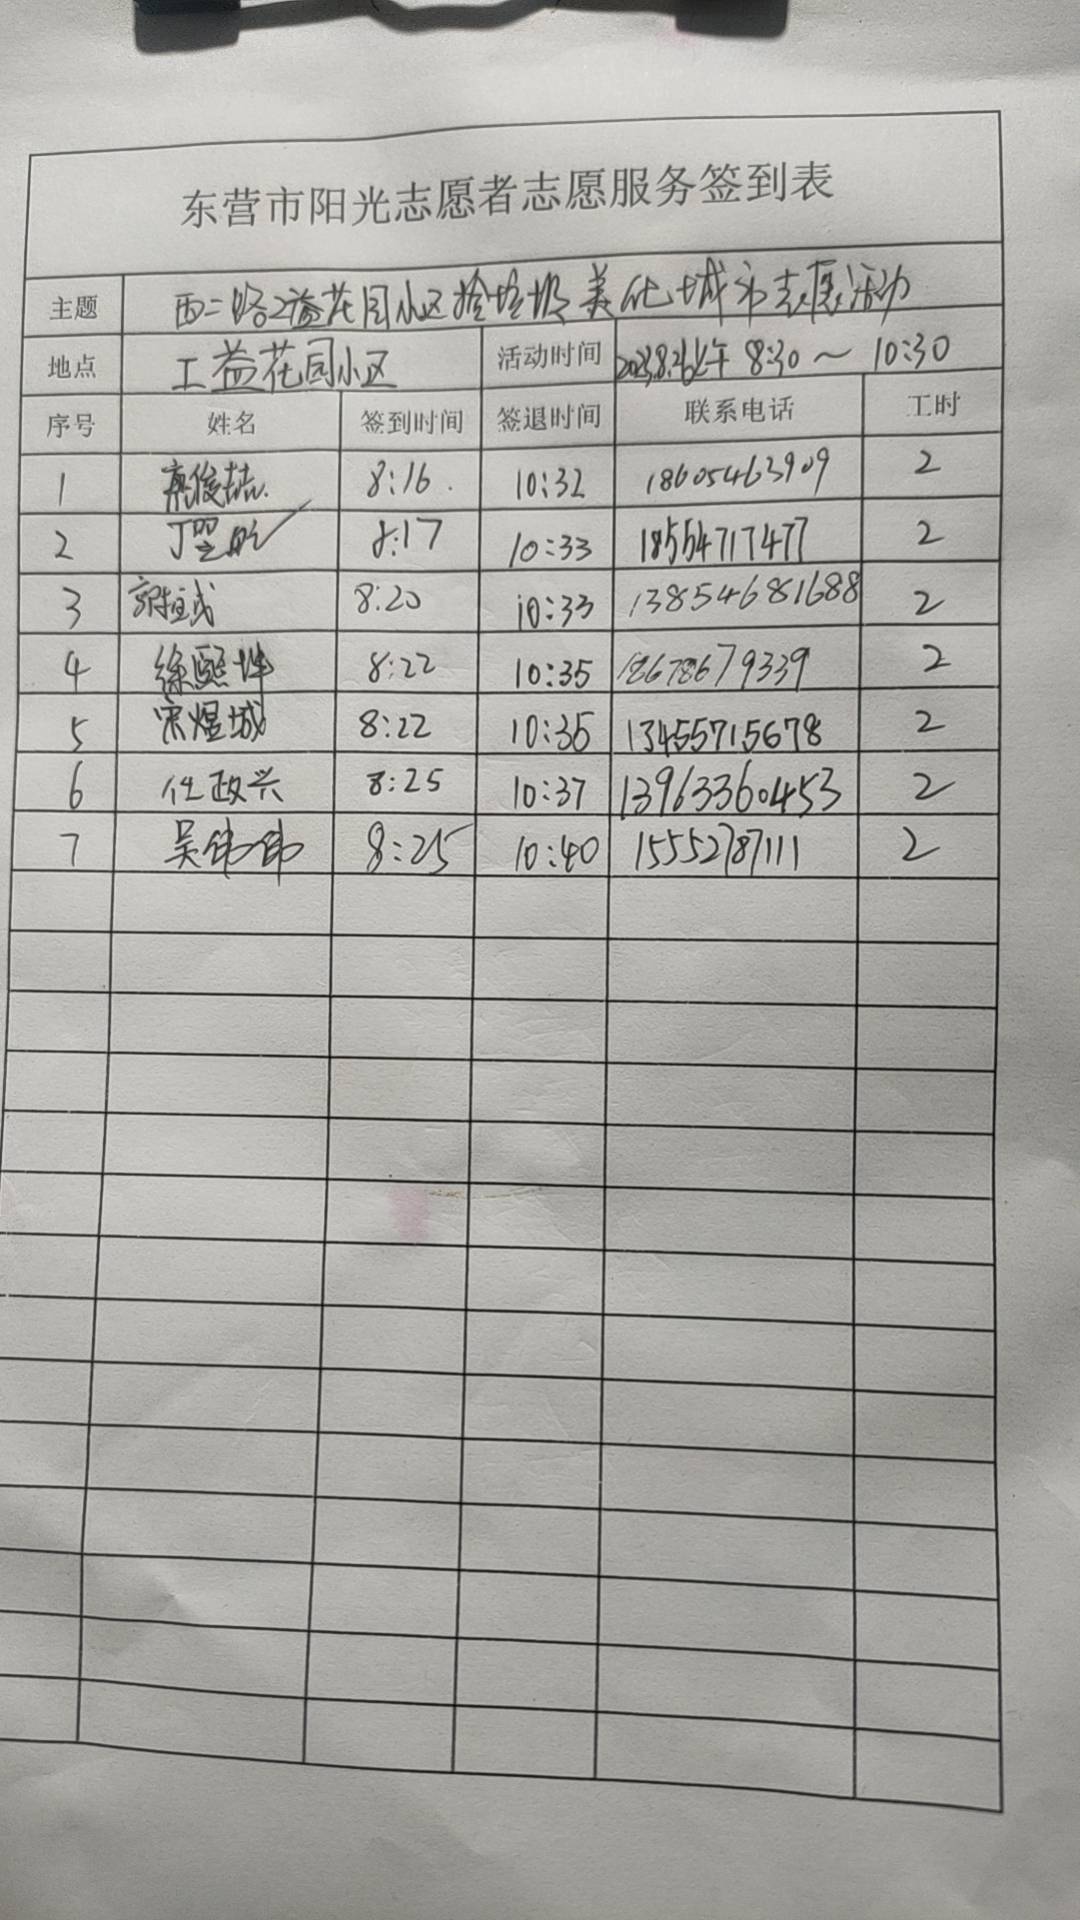 东营市阳光志愿者志愿服务签到表
主题 西二路工益花园小区捡垃圾美化城市志愿活动
地点 工益花园小区 活动时间 8:30～10:30
序号 姓名 签到时间 签退时间 联系电话 工时
1 8:16 10:32 18605463909 2
2 8:17 10:33 18554717477 2
3 8:20 10:33 13854681688 2
4 徐熙坤 8:22 10:35 18678679339 2
5 宋煜城 8:22 10:35 13455715678 2
6 任政兴 8:25 10:37 13963360453 2
7 吴伟伟 8:25 10:40 15552787111 2